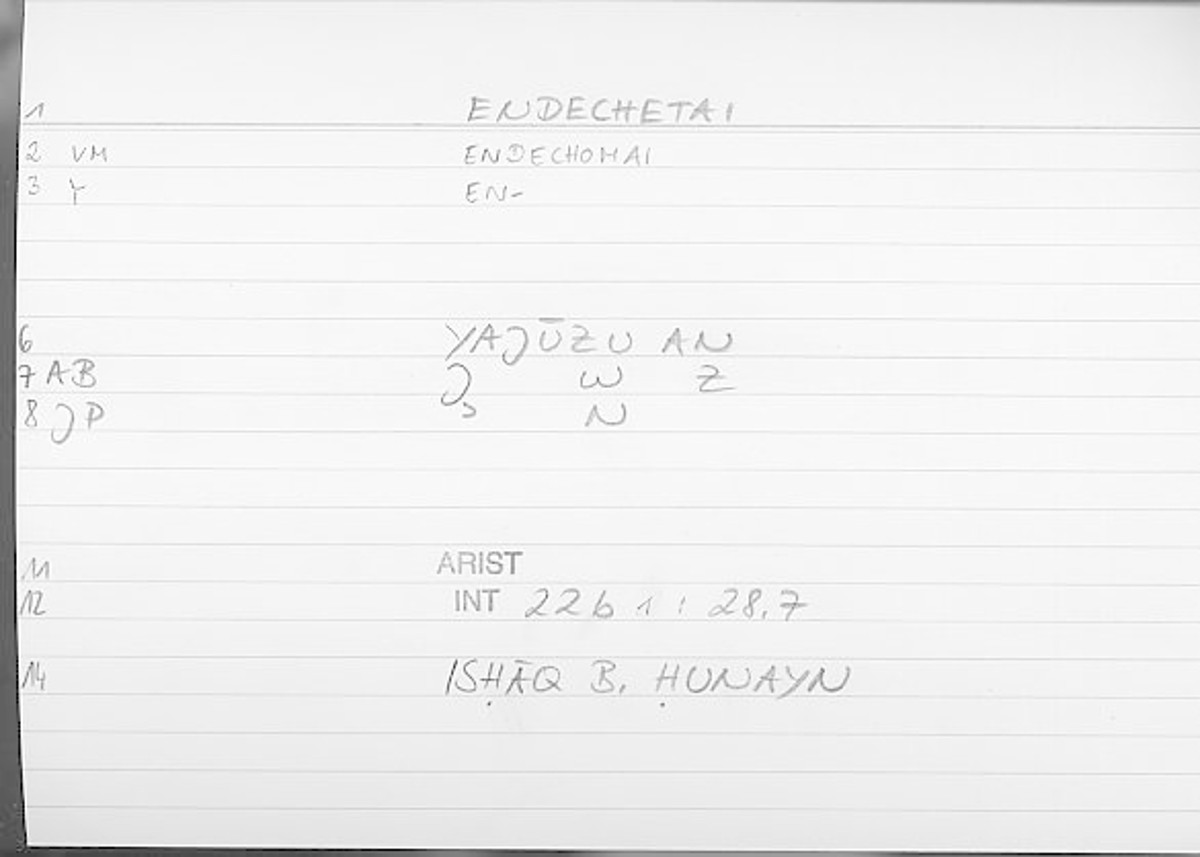 1 ENDECHETAI
2 VM ENDECHOMAI
3 Y EN-
6 YAJŪZU AN
7 AB J W Z
8 JP N
11 ARIST
12 INT 22b 1 : 28,7
14 ISḤĀQ B. ḤUNAYN